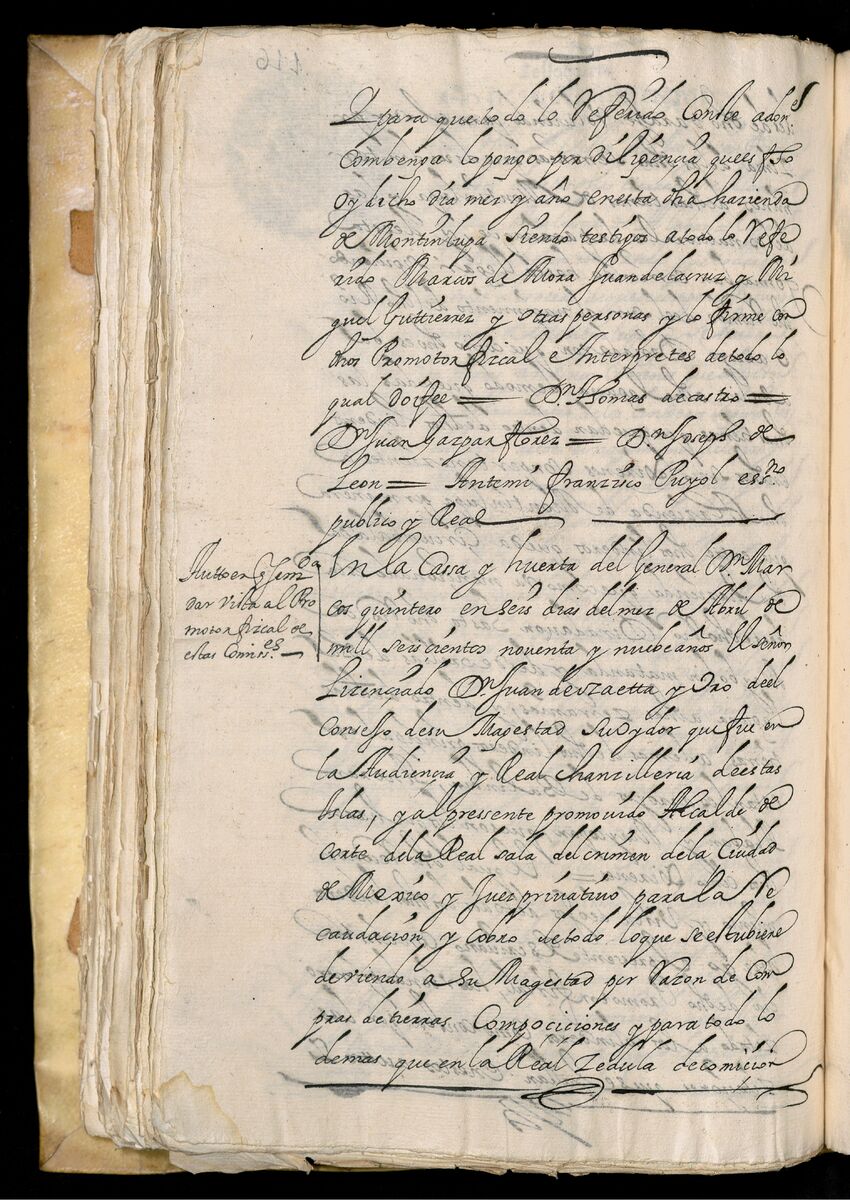 Y para que todo lo Referido Conste adon
Combenga lo pongo por diligencia que es fho
oy dicho dia mes y año en esta dha hazienda
de Montinlupa siendo testigos a todo lo Refe
rido Marcos de Mora Juan de la cruz y Mi
guel Guttierrez y otras personas y lo firme con
dhos Promotor fizcal e Interpretes de todo lo
qual doi fee = Dn. Thomas de castro =
Dn Juan Gazpar florez = Dn. Joseph de
Leon = Antemi franzisco Puyol essno
publico y Real
Autto en q̃ se man da
dar vista al Pro
motor fizcal de
estas Comis.es
En la Cassa y huerta del General Dn Mar
cos quintero en seis dias del mes de Abril de
mill seis cientos noventa y nuebe años El señor
Lizenciado Dn. Juan de sza etta y Oro del
Conssejo de su Magestad su oydor que fue en
la Audiencia y Real chanzilleria de estas
Islas, y al pressente promovido Alcalde de
Corte de la Real sala del crimen de la Ciudad
de Mexico y Juez privativo para la Re
caudacion y cobro de todo lo que se estubiere
deviendo a Su Magestad por Razon de Com
pras de tierras Compociciones y para todo lo
demas que en la Real Zedula de comicion